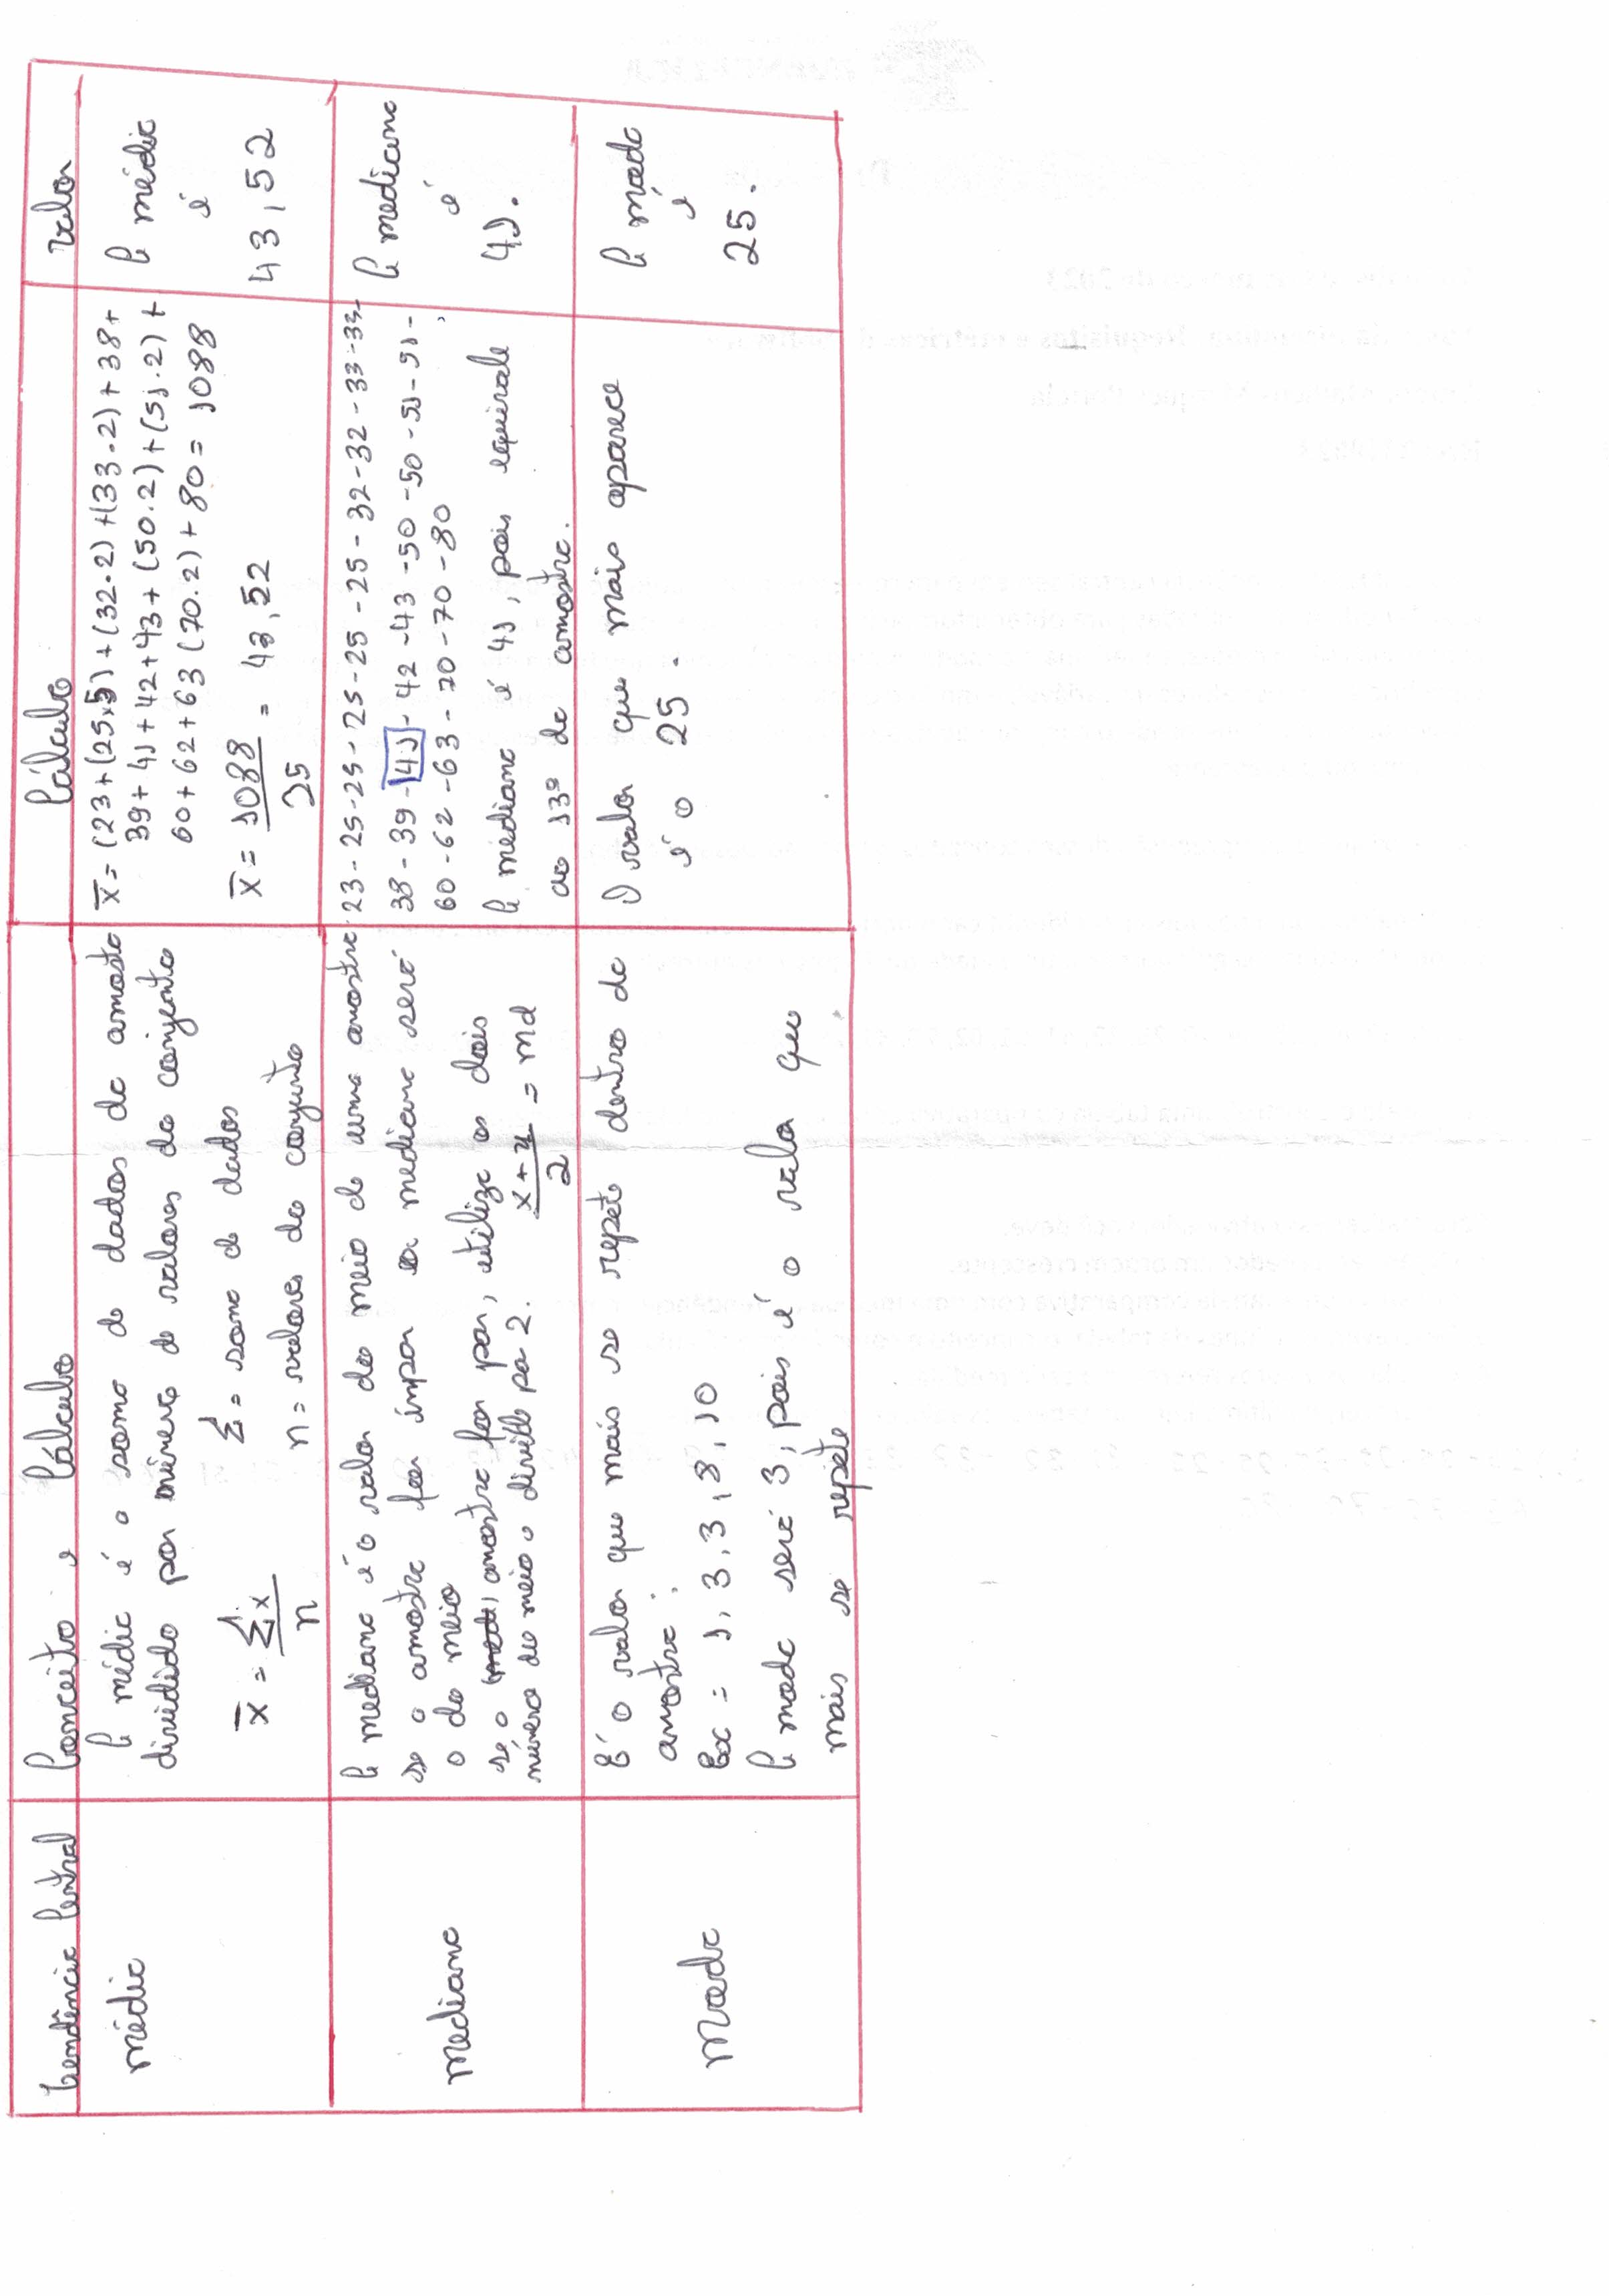 Tendência Central
Conceito e Cálculo
Cálculo
Valor
média
A média é a soma de dados da amostra
dividido por número de valores do conjunto
x̄ = Σx / n
Σ = soma de dados
n = valores do conjunto
x̄ = (23+(25x5)+(32.2)+(33.2)+38+
39+41+42+43+(50.2)+(51.2)+
60+62+63(70.2)+80 = 1088
x̄ = 1088 / 25 = 43,52
A média
é
43,52
mediana
A mediana é o valor do meio de uma amostra
se a amostra for ímpar a mediana será
o do meio
se a amostra for par, utiliza os dois
número do meio e divide por 2. x+y / 2 = md
23-25-25-25-25-25-25-32-32-33-33-
38-39-41-42-43-50-50-51-51-
60-62-63-70-70-80
A mediana é 41, pois equivale
ao 13º da amostra.
A mediana
é
41.
Moda
É o valor que mais se repete dentro da
amostra:
Ex = 1, 3, 3, 8, 10
A moda será 3, pois é o valor que
mais se repete
O valor que mais aparece
é o 25.
A moda
é
25.